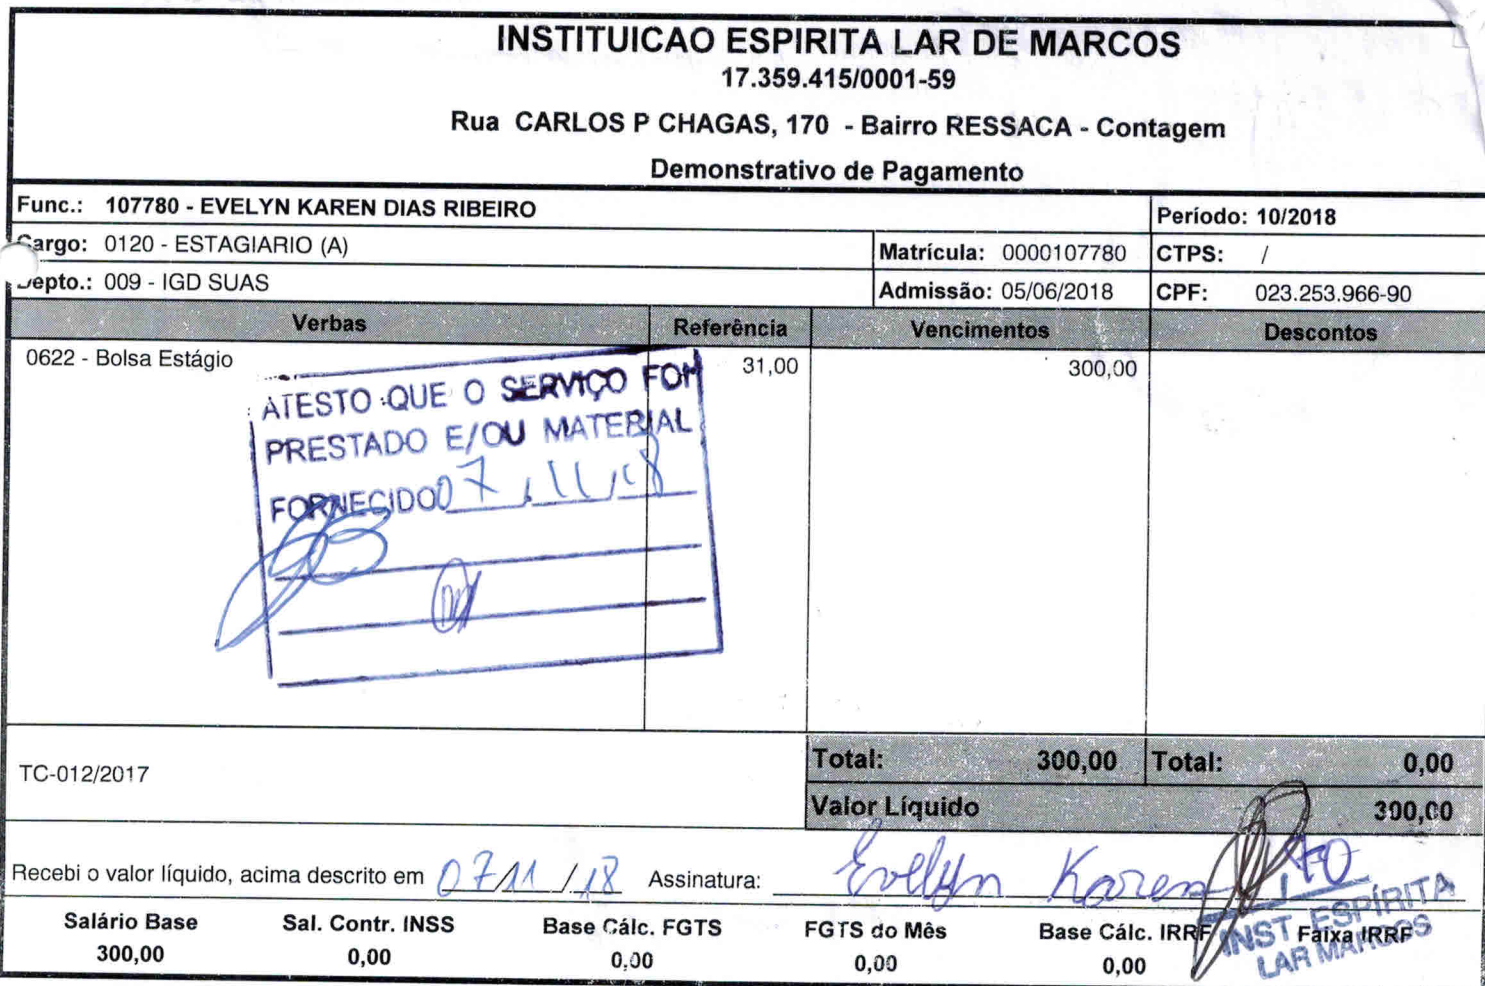 INSTITUICAO ESPIRITA LAR DE MARCOS
17.359.415/0001-59
Rua CARLOS P CHAGAS, 170 - Bairro RESSACA - Contagem
Demonstrativo de Pagamento
Func.: 107780 - EVELYN KAREN DIAS RIBEIRO Período: 10/2018
Cargo: 0120 - ESTAGIARIO (A) Matrícula: 0000107780 CTPS: /
Depto.: 009 - IGD SUAS Admissão: 05/06/2018 CPF: 023.253.966-90
Verbas Referência Vencimentos Descontos
0622 - Bolsa Estágio 31,00 300,00
ATESTO QUE O SERVIÇO FOI
PRESTADO E/OU MATERIAL
FORNECIDO 07/11/18
Total: 300,00 Total: 0,00
TC-012/2017
Valor Líquido 300,00
Recebi o valor líquido, acima descrito em 07/11/18 Assinatura: Evellyn Karen
Salário Base Sal. Contr. INSS Base Cálc. FGTS FGTS do Mês Base Cálc. IRRF Faixa IRRF
300,00 0,00 0,00 0,00 0,00
INST. ESPÍRITA
LAR MARCOS